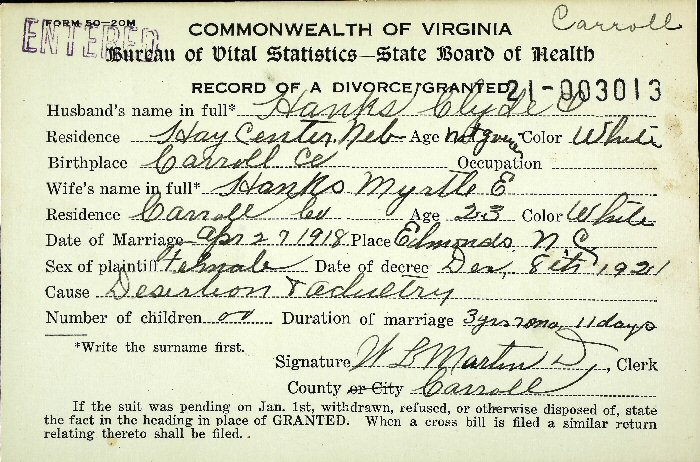 FORM 50—20M
ENTERED
Carroll
COMMONWEALTH OF VIRGINIA
Bureau of Vital Statistics—State Board of Health
RECORD OF A DIVORCE GRANTED 21-003013
Husband's name in full* Hanks Clyde
Residence Hay Center, Neb Age not given Color White
Birthplace Carroll Co Occupation
Wife's name in full* Hanks Myrtle E
Residence Carroll Co Age 23 Color White
Date of Marriage Apr 27 1918 Place Edmonds N C
Sex of plaintiff Female Date of decree Dec, 8th, 1921
Cause Desertion & adultry
Number of children oo Duration of marriage 3 yrs 7 mo. 11 days
*Write the surname first.
Signature W L Martin, Clerk
County or City Carroll
If the suit was pending on Jan. 1st, withdrawn, refused, or otherwise disposed of, state
the fact in the heading in place of GRANTED. When a cross bill is filed a similar return
relating thereto shall be filed.